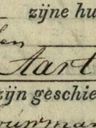 zijne hu
Aart
zijn geschie